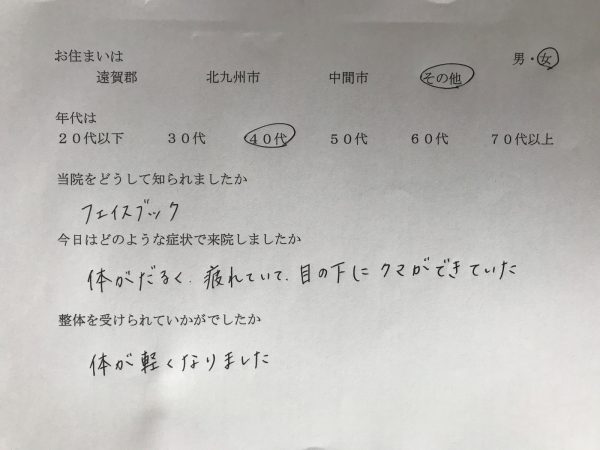 お住まいは 男・女
遠賀郡 北九州市 中間市 その他
年代は
20代以下 30代 40代 50代 60代 70代以上
当院をどうして知られましたか
フェイスブック
今日はどのような症状で来院しましたか
体がだるく、疲れていて、目の下にクマができていた
整体を受けられていかがでしたか
体が軽くなりました